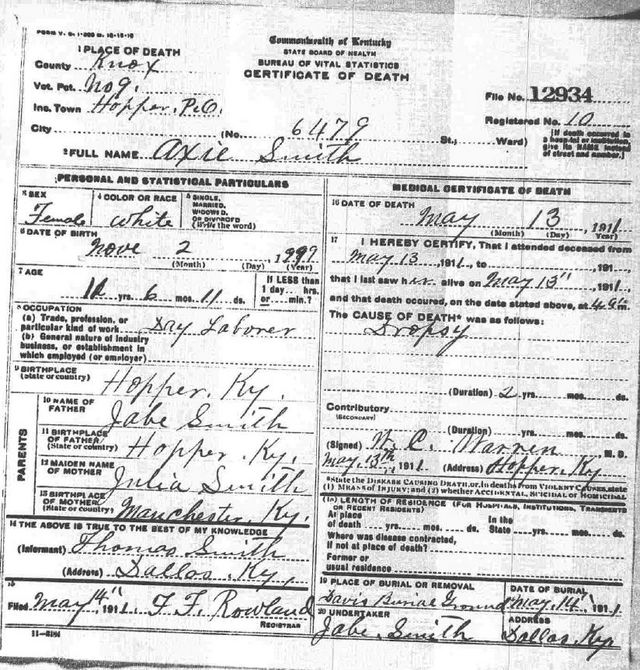 FORM V. S. 1-
Commonwealth of Kentucky
STATE BOARD OF HEALTH
BUREAU OF VITAL STATISTICS
CERTIFICATE OF DEATH
1 PLACE OF DEATH
County Knox
Vot. Pct. No 9.
Inc. Town Hopper, P.O.
City (No. 6479 St., Ward)
File No. 12934
Registered No. 10
[If death occurred in a hospital or institution, give its NAME instead of street and number.]
2 FULL NAME Axie Smith
PERSONAL AND STATISTICAL PARTICULARS
3 SEX Female
4 COLOR OR RACE White
5 SINGLE, MARRIED, WIDOWED, OR DIVORCED (Write the word)
6 DATE OF BIRTH Nove 2
(Month) (Day) (Year)
7 AGE
yrs. 6 mos. 11 ds.
If LESS than 1 day... hrs. or... min.?
8 OCCUPATION
(a) Trade, profession, or particular kind of work Day Laborer
(b) General nature of industry business, or establishment in which employed (or employer)
9 BIRTHPLACE (State or country) Hopper, Ky.
PARENTS
10 NAME OF FATHER Jabe Smith
11 BIRTHPLACE OF FATHER (State or country) Hopper, Ky.
12 MAIDEN NAME OF MOTHER Julia Smith
13 BIRTHPLACE OF MOTHER (State or country) Manchester, Ky.
14 THE ABOVE IS TRUE TO THE BEST OF MY KNOWLEDGE
(Informant) Thomas Smith
(Address) Dallas, Ky,
15
Filed May 14" 1911 F. F. Rowland
REGISTRAR
MEDICAL CERTIFICATE OF DEATH
16 DATE OF DEATH
May 13, 1911
(Month) (Day) (Year)
17 I HEREBY CERTIFY, That I attended deceased from
May 13 1911, to 191
that I last saw her alive on May 13" 1911,
and that death occured, on the date stated above, at m.
The CAUSE OF DEATH* was as follows:
Dropsy
(Duration) 2 yrs. mos. ds.
Contributory (SECONDARY)
(Duration) yrs. mos. ds.
(Signed) W. C. Warren M. D.
May. 13th, 1911 (Address) Hopper, Ky
*State the DISEASE CAUSING DEATH, or, in deaths from VIOLENT CAUSES, state (1) MEANS OF INJURY; and (2) whether ACCIDENTAL, SUICIDAL OR HOMICIDAL
18 LENGTH OF RESIDENCE (FOR HOSPITALS, INSTITUTIONS, TRANSIENTS OR RECENT RESIDENTS)
At place of death yrs. mos. ds. In the State yrs. mos. ds.
Where was disease contracted, if not at place of death?
Former or usual residence
19 PLACE OF BURIAL OR REMOVAL Davis Burial Ground
DATE OF BURIAL May. 14" 1911
20 UNDERTAKER Jabe Smith
ADDRESS Dallas, Ky